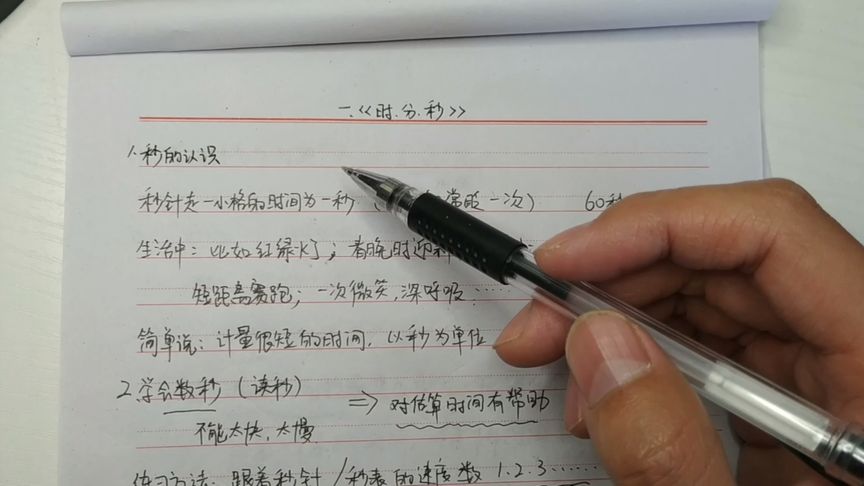 一.<<时.分.秒>>
1.秒的认识
秒针走一小格的时间为一秒 常眨一次) 60秒
生活中: 比如红绿灯; 春晚时迎新
短距离赛跑; 一次微笑,深呼吸……
简单说: 计量很短的时间, 以秒为单位
2.学会数秒 (读秒)
⇒ 对估算时间有帮助
不能太快,太慢
练习方法: 跟着秒针/秒表的速度数 1.2.3……